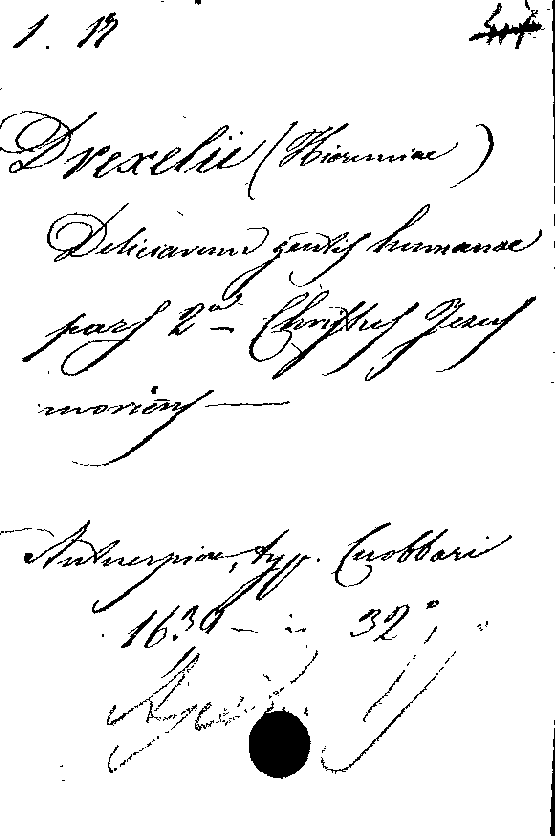 Drexelii (Hieremiae)
Deliciarum gentis humanae
pars 2a Christus Jesus
moriens —
Antuerpiae, typ. Cnobbari
1639 — in 32°,